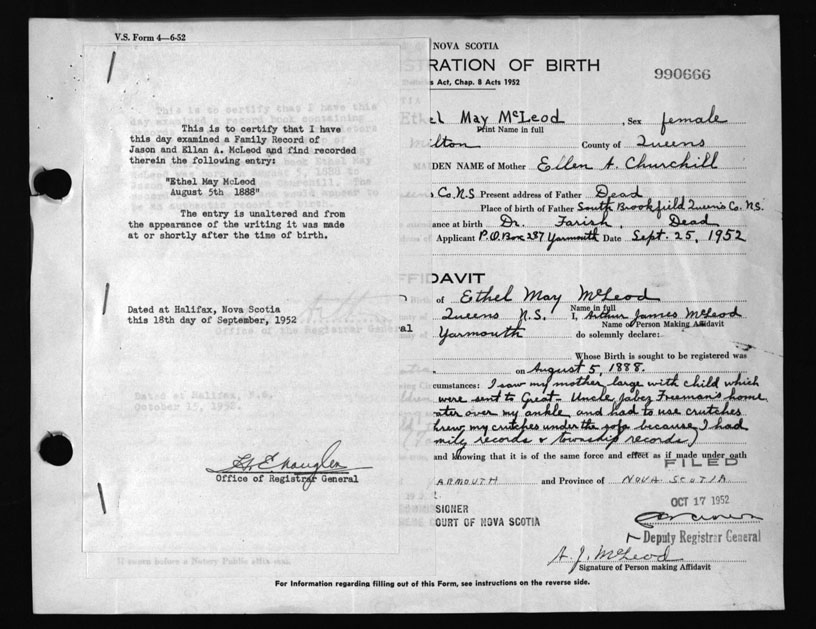 V.S. Form 4—6-52
This is to certify that I have
this day examined a Family Record of
Jason and Ellan A. McLeod and find recorded
therein the following entry:
"Ethel May McLeod
August 5th 1888"
The entry is unaltered and from
the appearance of the writing it was made
at or shortly after the time of birth.
Dated at Halifax, Nova Scotia
this 18th day of September, 1952
Office of Registrar General
NOVA SCOTIA
RATION OF BIRTH
s Act, Chap. 8 Acts 1952
990666
el May McLeod, Sex female
Print Name in full
ilton County of Queens
DEN NAME of Mother Ellen A. Churchill
Co. N.S. Present address of Father Dead
Place of birth of Father South Brookfield Queen's Co. N.S.
ance at birth Dr. Farish, Dead
Applicant P.O. Box 237 Yarmouth Date Sept. 25, 1952
DAVIT
of Ethel May McLeod
Name in full
Queens N.S. I, Arthur James McLeod
Name of Person Making Affidavit
Yarmouth do solemnly declare:
Whose Birth is sought to be registered was
on August 5, 1888.
cumstances: I saw my mother large with child which
were sent to Great-Uncle Jabez Freeman's home
ater over my ankle and had to use crutches
hrew my crutches under the sofa because I had
mily records & township records)
and knowing that it is of the same force and effect as if made under oath
FILED
ARMOUTH and Province of NOVA SCOTIA
OCT 17 1952
SIGNER
OURT OF NOVA SCOTIA
Deputy Registrar General
A. J. McLeod
Signature of Person making Affidavit
For Information regarding filling out of this Form, see instructions on the reverse side.